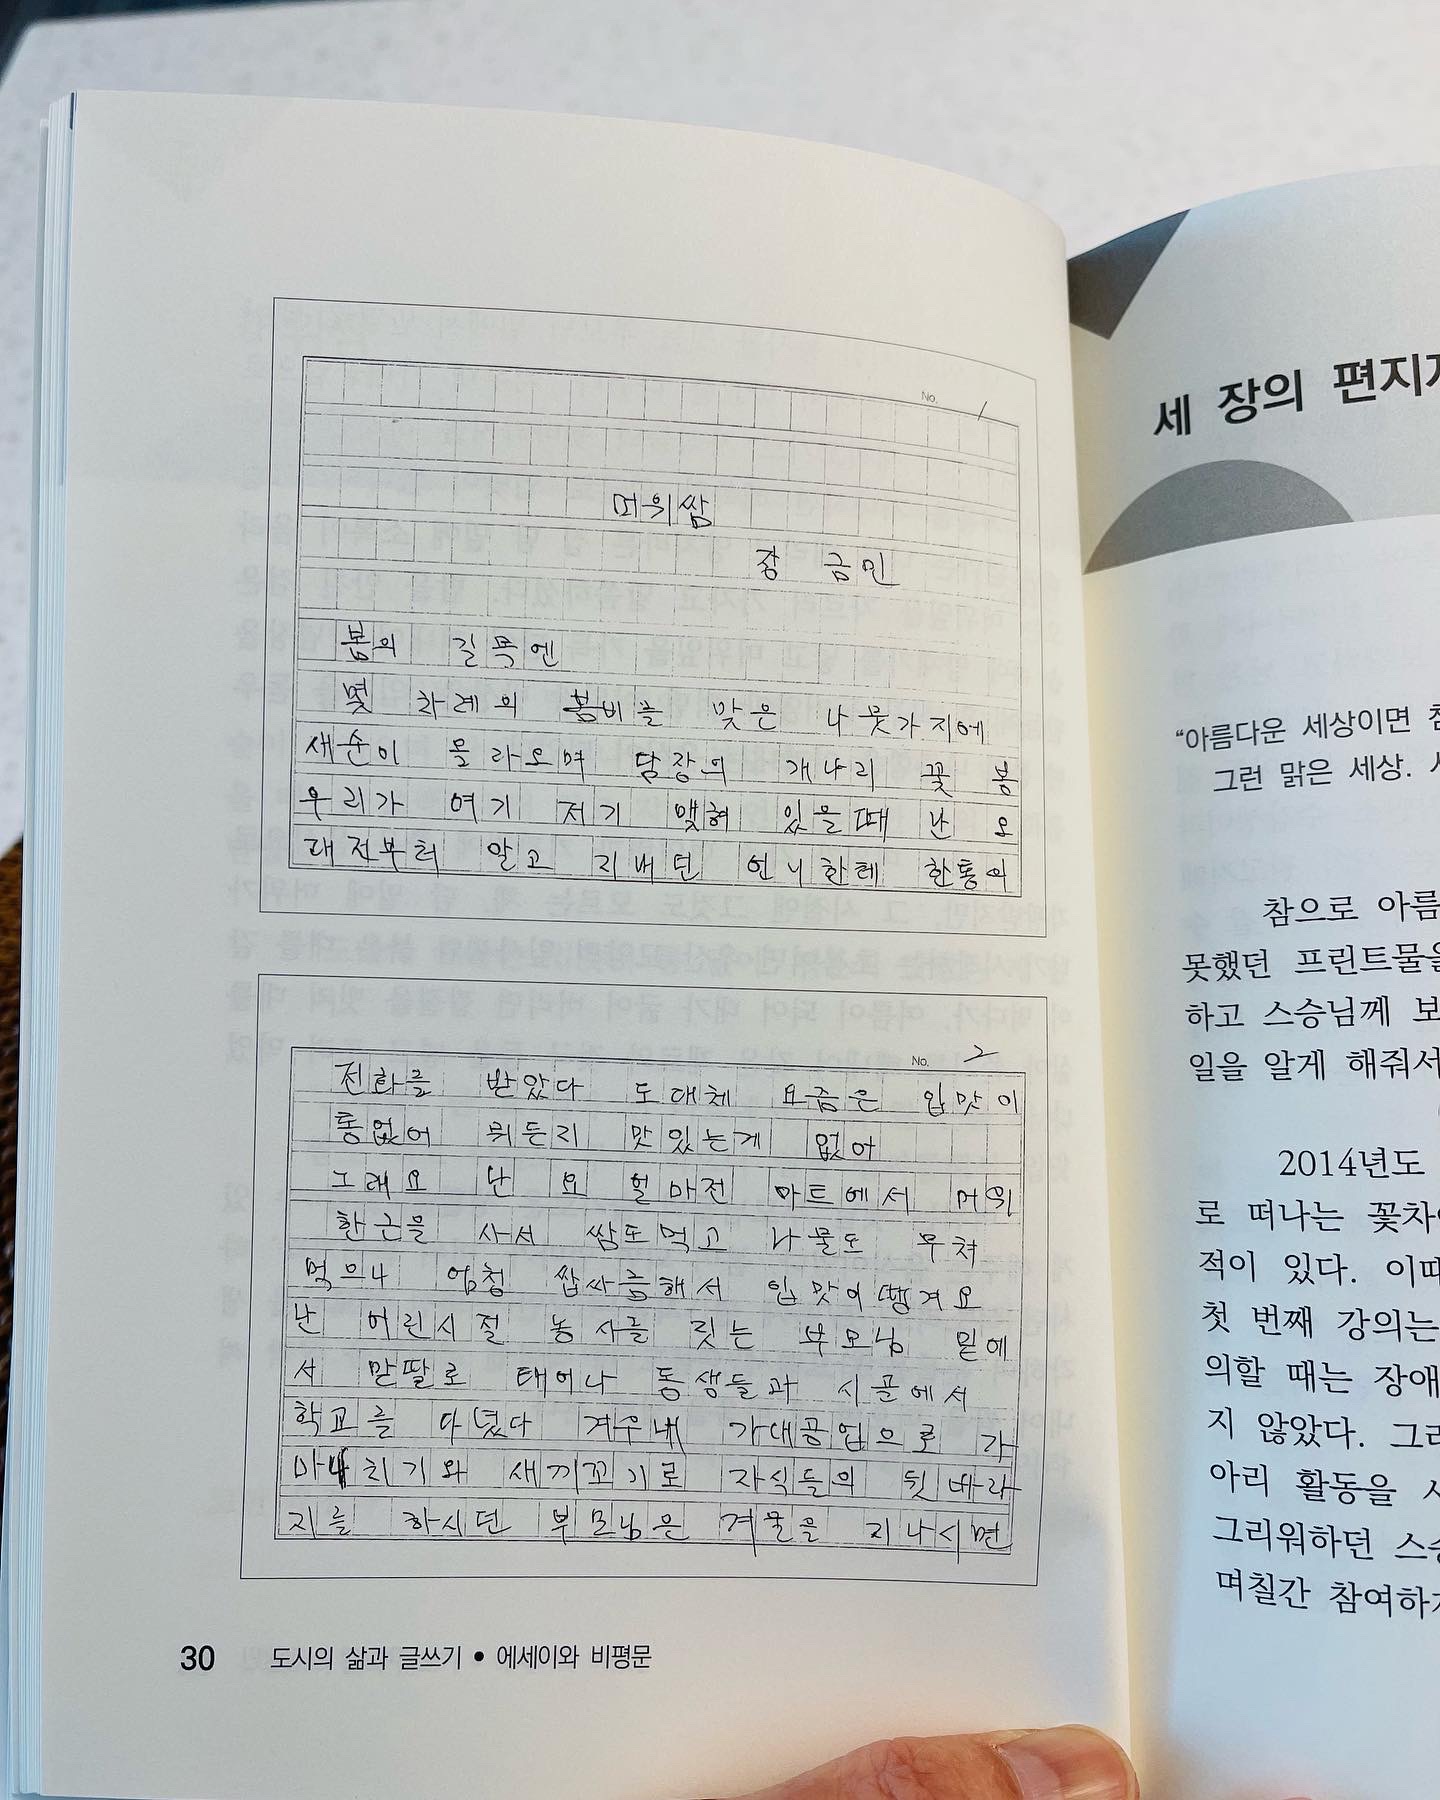 No. 1
머위쌈
장 금민
봄의 길목엔
몇 차례의 봄비를 맞은 나뭇가지에
새순이 물라오며 담장의 개나리 꽃 봉
우리가 여기 저기 맺혀 있을때 난 오
래전부터 알고 지내던 언니한테 한통의
No. 2
전화를 받았다 도대체 요즘은 입맛이
통없어 뭐든리 맛있는게 없어
그래요 난 요 얼마전 마트에서 머위
한근을 사서 쌈도먹고 나물도 무쳐
먹으니 엄청 쌉싸름해서 입맛이땡겨요
난 어린시절 농사를 짓는 부모님 밑에
서 맏딸로 태어나 동생들과 시골에서
학교를 다녔다 겨우내 가내공업으로 가
마니치기와 새끼꼬기로 자식들의 뒷바라
지를 하시던 부모님은 겨울을 지나시면
30 도시의 삶과 글쓰기 • 에세이와 비평문
세 장의 편지
“아름다운 세상이면
그런 맑은 세상.
참으로 아름
못했던 프린트물을
하고 스승님께 보
일을 알게 해줘서
2014년도
로 떠나는 꽃차
적이 있다. 이때
첫 번째 강의는
의할 때는 장애
지 않았다. 그
아리 활동을
그리워하던 스승
며칠간 참여하